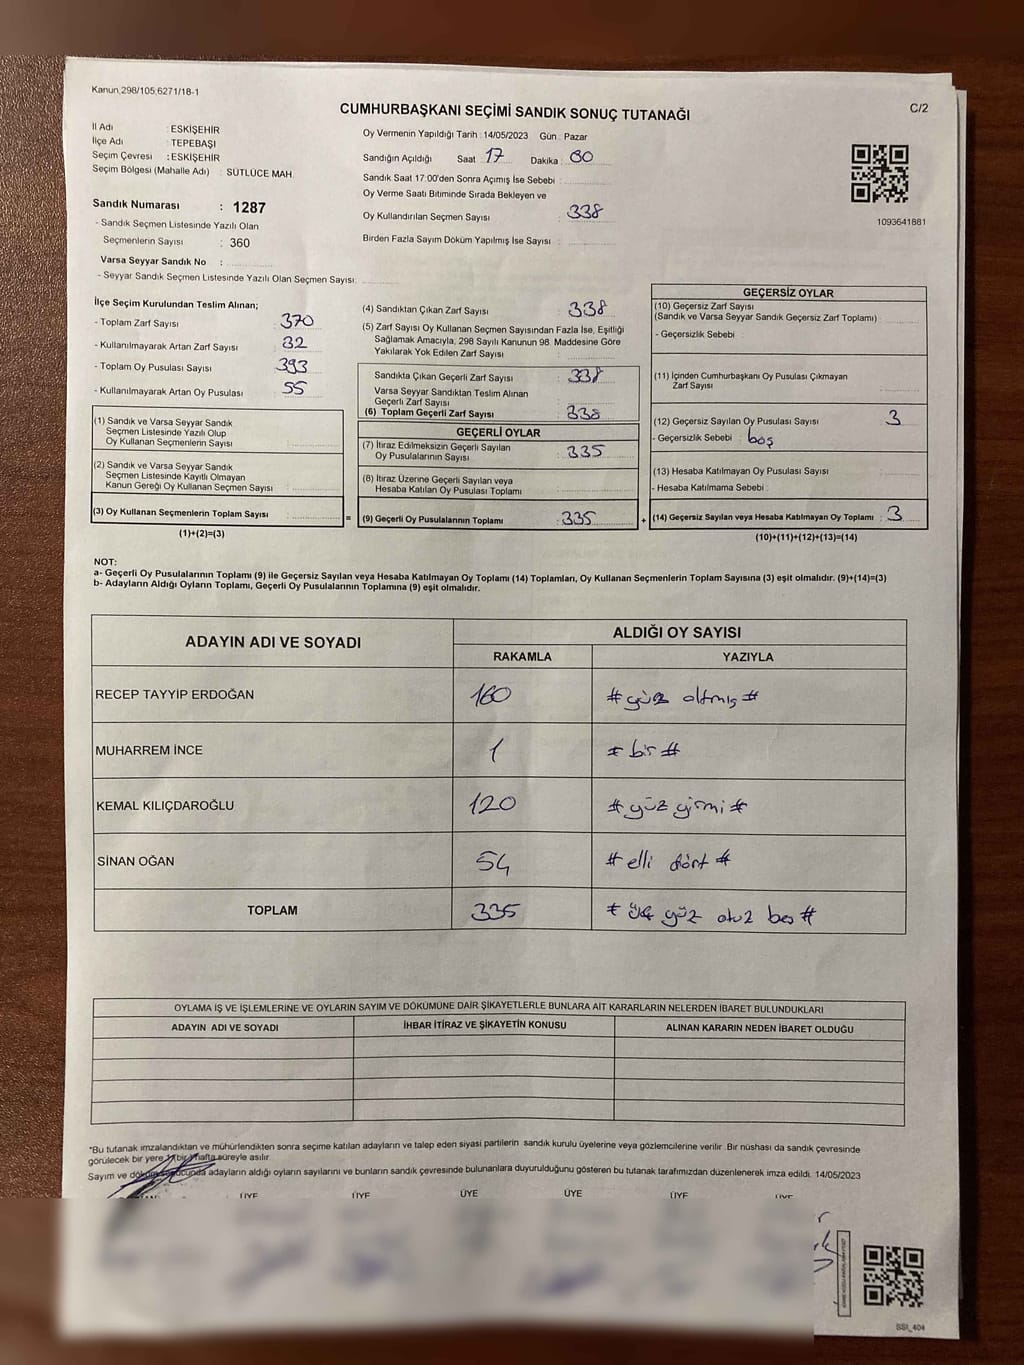 Kanun 298/105,6271/18-1
CUMHURBAŞKANI SEÇİMİ SANDIK SONUÇ TUTANAĞI
C/2
İl Adı : ESKİŞEHİR
İlçe Adı : TEPEBAŞI
Seçim Çevresi : ESKİŞEHİR
Seçim Bölgesi (Mahalle Adı) : SÜTLÜCE MAH.
Sandık Numarası : 1287
- Sandık Seçmen Listesinde Yazılı Olan
Seçmenlerin Sayısı : 360
Varsa Seyyar Sandık No :
- Seyyar Sandık Seçmen Listesinde Yazılı Olan Seçmen Sayısı:
Oy Vermenin Yapıldığı Tarih : 14/05/2023 Gün : Pazar
Sandığın Açıldığı Saat : 17 Dakika : 00
Sandık Saat 17:00'den Sonra Açımış İse Sebebi :
Oy Verme Saati Bitiminde Sırada Bekleyen ve
Oy Kullandırılan Seçmen Sayısı : 338
Birden Fazla Sayım Döküm Yapılmış İse Sayısı :
1093641881
İlçe Seçim Kurulundan Teslim Alınan;
- Toplam Zarf Sayısı : 370
- Kullanılmayarak Artan Zarf Sayısı : 32
- Toplam Oy Pusulası Sayısı : 393
- Kullanılmayarak Artan Oy Pusulası : 55
(1) Sandık ve Varsa Seyyar Sandık
Seçmen Listesinde Yazılı Olup
Oy Kullanan Seçmenlerin Sayısı :
(2) Sandık ve Varsa Seyyar Sandık
Seçmen Listesinde Kayıtlı Olmayan
Kanun Gereği Oy Kullanan Seçmen Sayısı :
(3) Oy Kullanan Seçmenlerin Toplam Sayısı :
(1)+(2)=(3)
=
(4) Sandıktan Çıkan Zarf Sayısı : 338
(5) Zarf Sayısı Oy Kullanan Seçmen Sayısından Fazla İse, Eşitliği
Sağlamak Amacıyla, 298 Sayılı Kanunun 98. Maddesine Göre
Yakılarak Yok Edilen Zarf Sayısı :
Sandıkta Çıkan Geçerli Zarf Sayısı : 338
Varsa Seyyar Sandıktan Teslim Alınan
Geçerli Zarf Sayısı :
(6) Toplam Geçerli Zarf Sayısı : 338
GEÇERLİ OYLAR
(7) İtiraz Edilmeksizin Geçerli Sayılan
Oy Pusulalarının Sayısı : 335
(8) İtiraz Üzerine Geçerli Sayılan veya
Hesaba Katılan Oy Pusulası Toplamı :
(9) Geçerli Oy Pusulalarının Toplamı : 335
+
GEÇERSİZ OYLAR
(10) Geçersiz Zarf Sayısı
(Sandık ve Varsa Seyyar Sandık Geçersiz Zarf Toplamı) :
- Geçersizlik Sebebi :
(11) İçinden Cumhurbaşkanı Oy Pusulası Çıkmayan
Zarf Sayısı :
(12) Geçersiz Sayılan Oy Pusulası Sayısı : 3
- Geçersizlik Sebebi : boş
(13) Hesaba Katılmayan Oy Pusulası Sayısı :
- Hesaba Katılmama Sebebi :
(14) Geçersiz Sayılan veya Hesaba Katılmayan Oy Toplamı : 3
(10)+(11)+(12)+(13)=(14)
NOT:
a- Geçerli Oy Pusulalarının Toplamı (9) ile Geçersiz Sayılan veya Hesaba Katılmayan Oy Toplamı (14) Toplamları, Oy Kullanan Seçmenlerin Toplam Sayısına (3) eşit olmalıdır. (9)+(14)=(3)
b- Adayların Aldığı Oyların Toplamı, Geçerli Oy Pusulalarının Toplamına (9) eşit olmalıdır.
ADAYIN ADI VE SOYADI
ALDIĞI OY SAYISI
RAKAMLA YAZIYLA
RECEP TAYYİP ERDOĞAN 160 # yüz altmış #
MUHARREM İNCE 1 # bir #
KEMAL KILIÇDAROĞLU 120 # yüz yirmi #
SİNAN OĞAN 54 # elli dört #
TOPLAM 335 # üç yüz otuz beş #
OYLAMA İŞ VE İŞLEMLERİNE VE OYLARIN SAYIM VE DÖKÜMÜNE DAİR ŞİKAYETLERLE BUNLARA AİT KARARLARIN NELERDEN İBARET BULUNDUKLARI
ADAYIN ADI VE SOYADI İHBAR İTİRAZ VE ŞİKAYETİN KONUSU ALINAN KARARIN NEDEN İBARET OLDUĞU
*Bu tutanak imzalandıktan ve mühürlendikten sonra seçime katılan adayların ve talep eden siyasi partilerin sandık kurulu üyelerine veya gözlemcilerine verilir. Bir nüshası da sandık çevresinde
görülecek bir yere bir hafta süreyle asılır.
Sayım ve döküm sonucunda adayların aldığı oyların sayılarını ve bunların sandık çevresinde bulunanlara duyurulduğunu gösteren bu tutanak tarafımızdan düzenlenerek imza edildi. 14/05/2023
ÜYE ÜYE ÜYE ÜYE ÜYE ÜYE
SSI_404